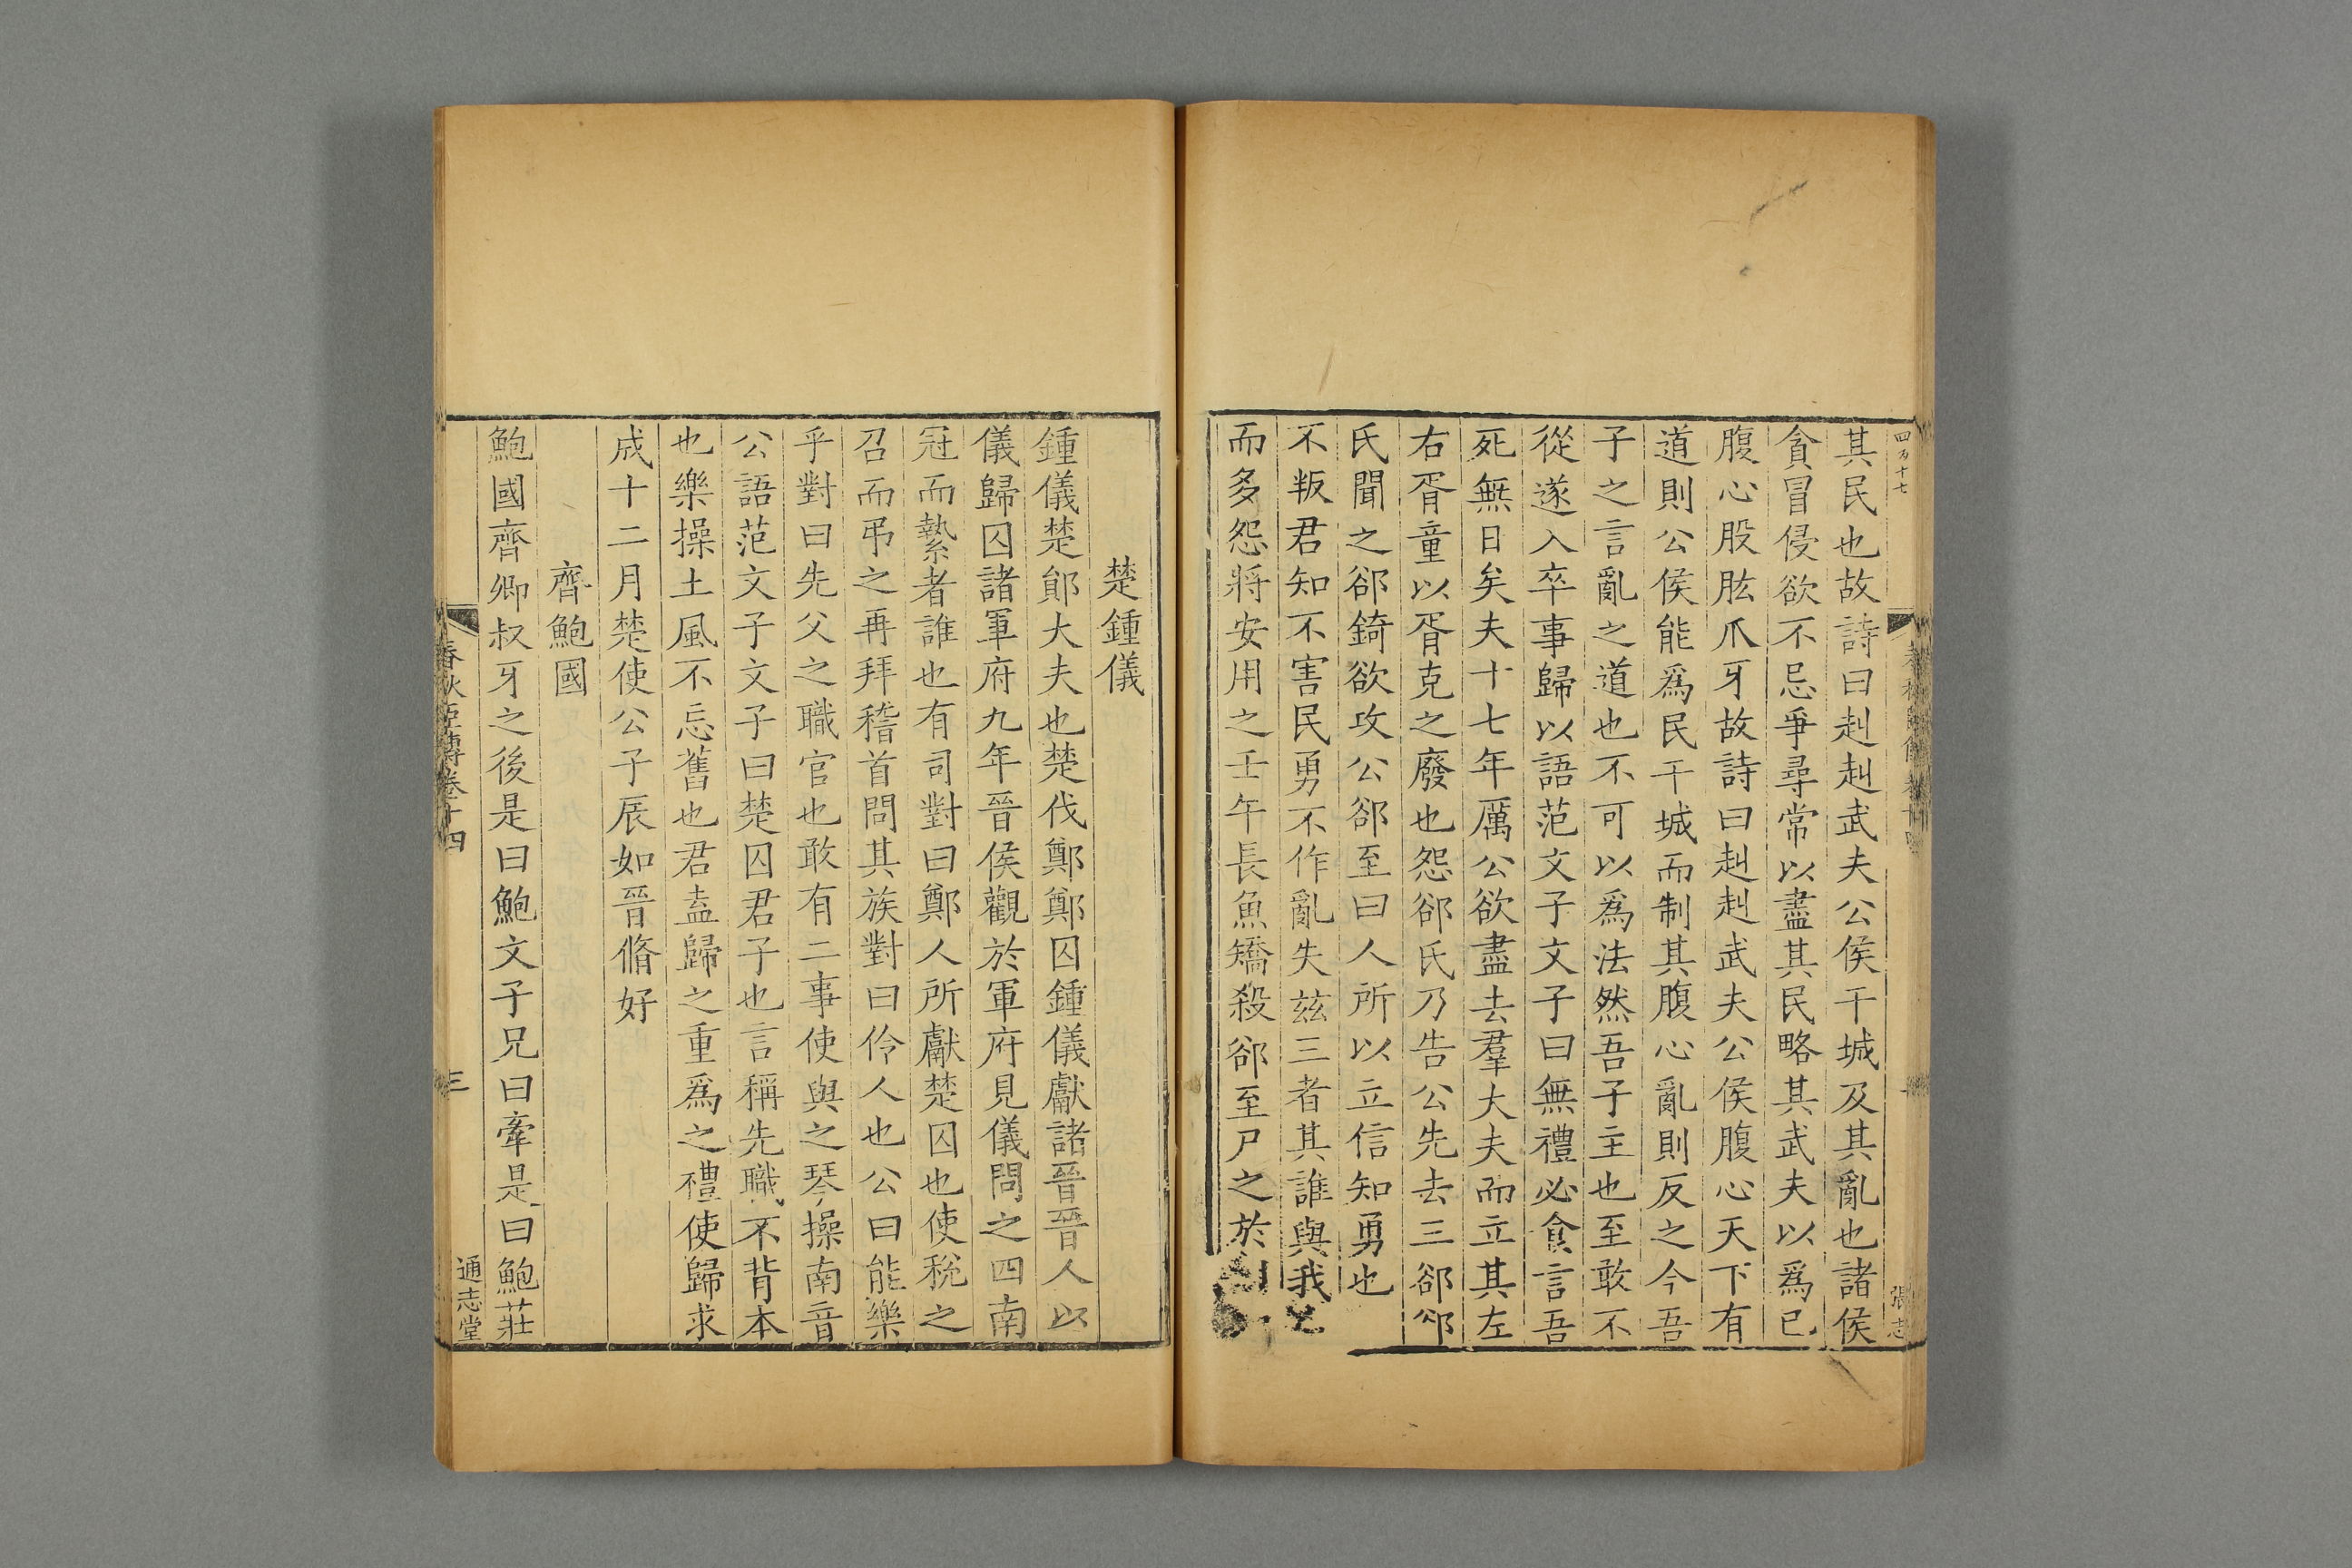 四百十七
其民也故詩曰赳赳武夫公侯干城及其亂也諸侯
貪冒侵欲不忌爭尋常以盡其民略其武夫以爲已
腹心股肱爪牙故詩曰赳赳武夫公侯腹心天下有
道則公侯能爲民干城而制其腹心亂則反之今吾
子之言亂之道也不可以爲法然吾子主也至敢不
從遂入卒事歸以語范文子文子曰無禮必食言吾
死無日矣夫十七年厲公欲盡去羣大夫而立其左
右胥童以胥克之廢也怨郤氏乃告公先去三郤郤
氏聞之郤錡欲攻公郤至曰人所以立信知勇也
不叛君知不害民勇不作亂失兹三者其誰與我
而多怨將安用之壬午長魚矯殺郤至尸之於
楚鍾儀
鍾儀楚鄖大夫也楚伐鄭鄭囚鍾儀獻諸晉晉人以
儀歸囚諸軍府九年晉侯觀於軍府見儀問之四南
冠而縶者誰也有司對曰鄭人所獻楚囚也使稅之
召而弔之再拜稽首問其族對曰伶人也公曰能樂
乎對曰先父之職官也敢有二事使與之琴操南音
公語范文子文子曰楚囚君子也言稱先職不背本
也樂操土風不忘舊也君盍歸之重爲之禮使歸求
成十二月楚使公子辰如晉脩好
齊鮑國
鮑國齊卿叔牙之後是曰鮑文子兄曰牽是曰鮑莊
春秋臣傳卷十四
三
通志堂